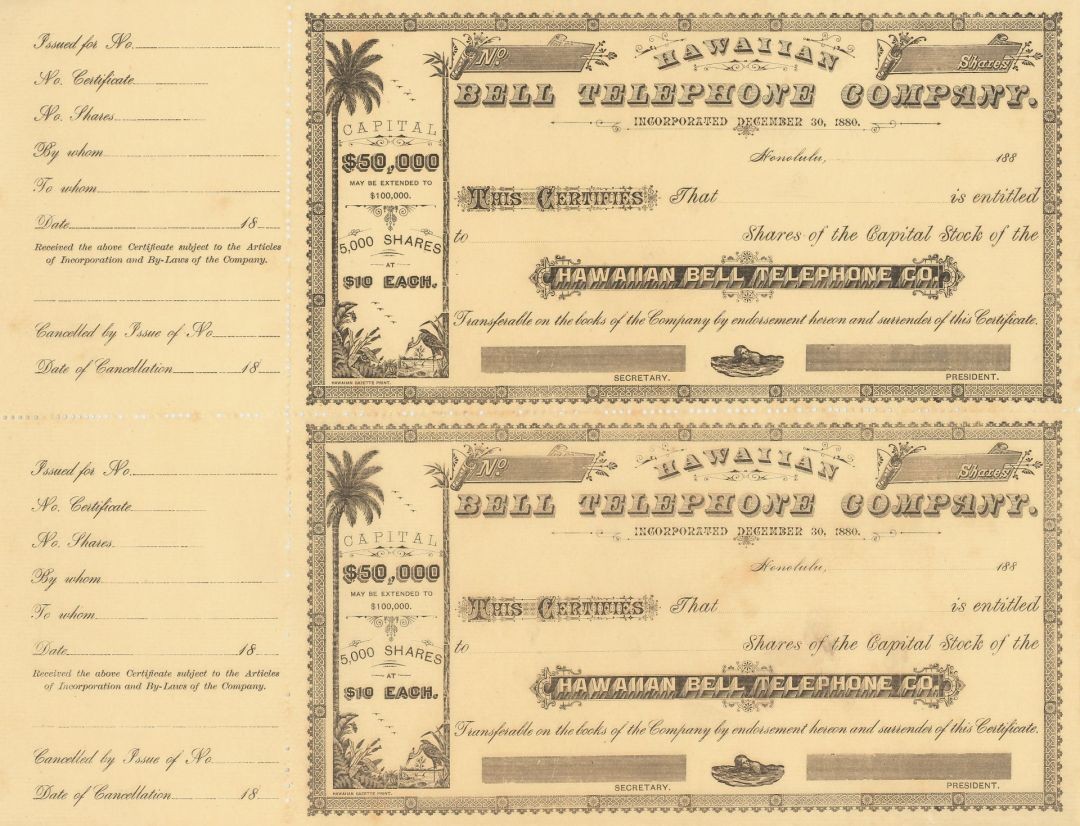 Issued for No.
No. Certificate
No. Shares
By whom
To whom
Date 18
Received the above Certificate subject to the Articles
of Incorporation and By-Laws of the Company.
Cancelled by Issue of No
Date of Cancellation 18
CAPITAL
$50,000
MAY BE EXTENDED TO
$100,000.
5,000 SHARES
AT
$10 EACH.
HAWAIIAN GAZETTE PRINT.
No.
HAWAIIAN
Shares
BELL TELEPHONE COMPANY.
INCORPORATED DECEMBER 30, 1880.
Honolulu, 188
THIS CERTIFIES That is entitled
to Shares of the Capital Stock of the
HAWAIIAN BELL TELEPHONE CO.
Transferable on the books of the Company by endorsement hereon and surrender of this Certificate.
SECRETARY.
PRESIDENT.
Issued for No.
No. Certificate
No. Shares
By whom
To whom
Date 18
Received the above Certificate subject to the Articles
of Incorporation and By-Laws of the Company.
Cancelled by Issue of No
Date of Cancellation 18
CAPITAL
$50,000
MAY BE EXTENDED TO
$100,000.
5,000 SHARES
AT
$10 EACH.
HAWAIIAN GAZETTE PRINT.
No.
HAWAIIAN
Shares
BELL TELEPHONE COMPANY.
INCORPORATED DECEMBER 30, 1880.
Honolulu, 188
THIS CERTIFIES That is entitled
to Shares of the Capital Stock of the
HAWAIIAN BELL TELEPHONE CO.
Transferable on the books of the Company by endorsement hereon and surrender of this Certificate.
SECRETARY.
PRESIDENT.